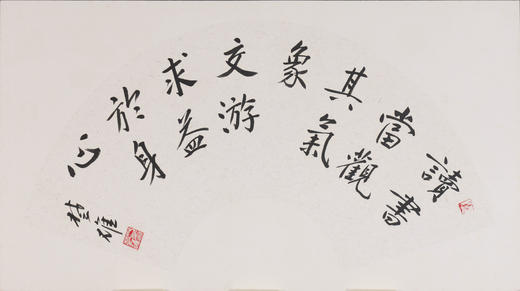 讀書
當觀
其氣
象
交游
求益
於身
心
雄